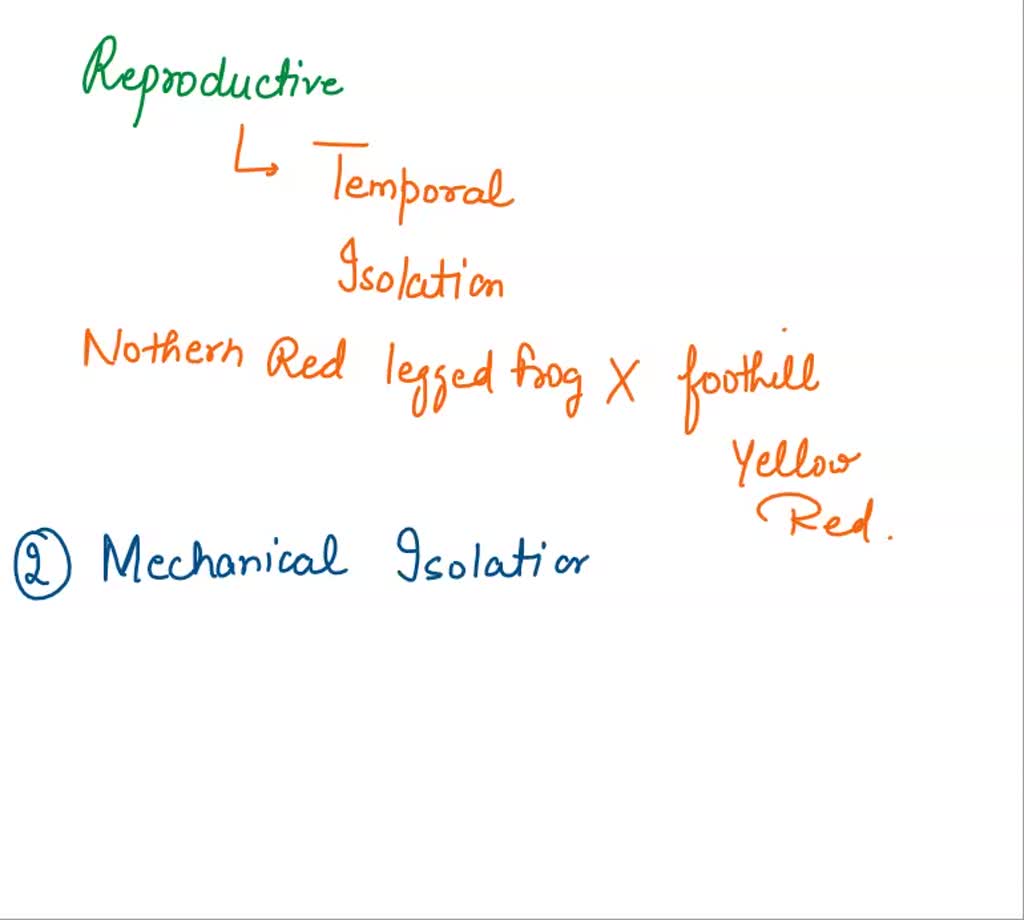 Reproductive
↳ Temporal
Isolation
Nothern Red legged frog X foothill
Yellow
Red.
② Mechanical Isolation